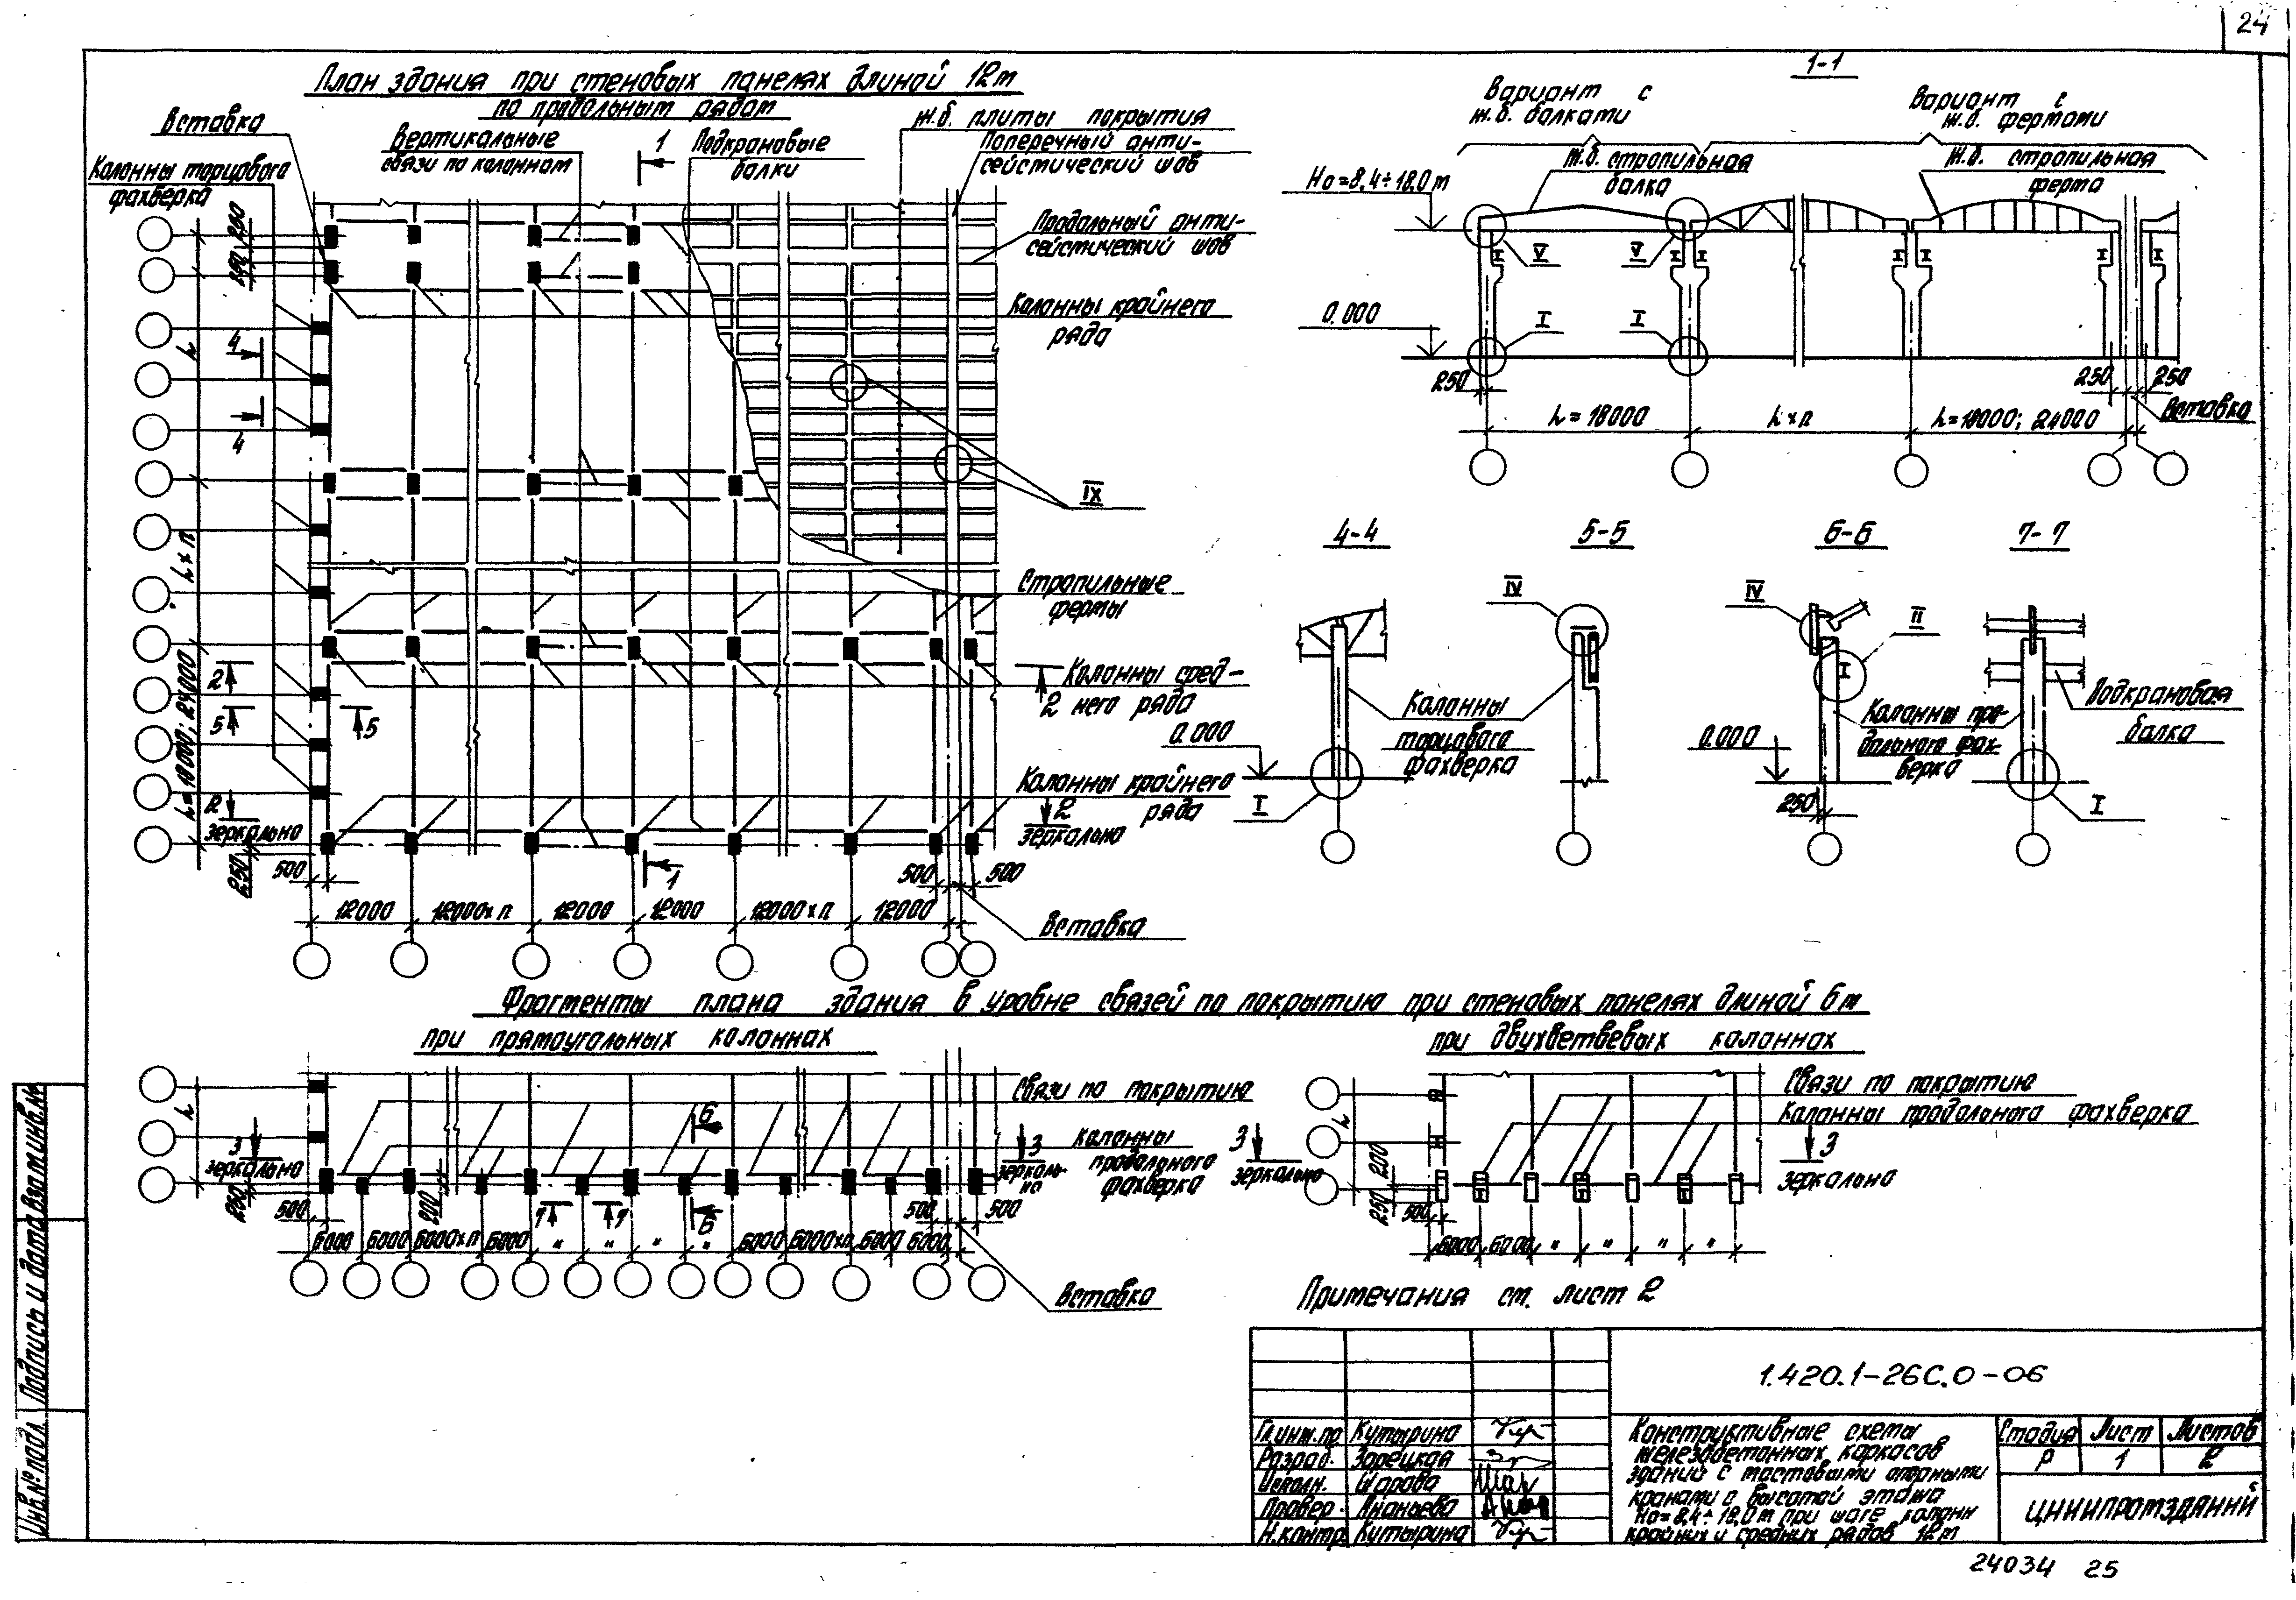 24
План здания при стеновых панелях длиной 12м
по продольным рядам
Вставка
Колонны торцового
фахверка
Вертикальные
связи по колоннам
1
Подкрановые
балки
ж.б. плиты покрытия
Поперечный анти-
сейсмический шов
Продольный анти-
сейсмический шов
Колонны крайнего
ряда
250
250
4
4
L
L×n
L=18000; 24000
IX
Стропильные
фермы
Колонны сред-
него ряда
2
2
5
5
Колонны крайнего
ряда
2
зеркально
2
зеркально
250
500
1
500
500
12000
12000×п
12000
12000
12000×п
12000
Вставка
1-1
Вариант с
ж.б. балками
Вариант с
ж.б. фермами
ж.б. стропильная
балка
ж.б. стропильная
ферма
Hо=8,4÷18,0м
V
V
0.000
I
I
250
250
250
L=18000
L×n
L=18000; 24000
Вставка
4-4
5-5
6-6
7-7
IV
IV
II
I
0.000
Колонны
торцового
фахверка
0.000
Колонны про-
дольного фах-
верка
Подкрановая
балка
250
I
I
Фрагменты плана здания в уровне связей по покрытию при стеновых панелях длиной 6м
при прямоугольных колоннах
при двухветвевых колоннах
L
3
зеркально
250
500
200
6
6
7
7
Связи по покрытию
Колонны
продольного
фахверка
3
зеркаль-
но
500
500
6000
6000
6000×п
6000
"
"
"
"
6000
6000×п
6000
6000
Вставка
L
3
зеркально
200
250
500
6000
6000
"
"
"
"
Связи по покрытию
Колонны продольного фахверка
3
зеркально
Примечания см. лист 2
1.420.1-26С.0-06
Гл.инж.пр Кутырина
Разраб. Зарецкая
Исполн. Шарова
Провер. Ананьева
Н.контр. Кутырина
Конструктивные схемы
железобетонных каркасов
зданий с мостовыми опорными
кранами с высотой этажа
Hо=8,4÷18,0м при шаге колонн
крайних и средних рядов 12м
Стадия Лист Листов
Р 1 2
ЦНИИПРОМЗДАНИЙ
Инв.№ подл. Подпись и дата Взам.инв.№
24034 25